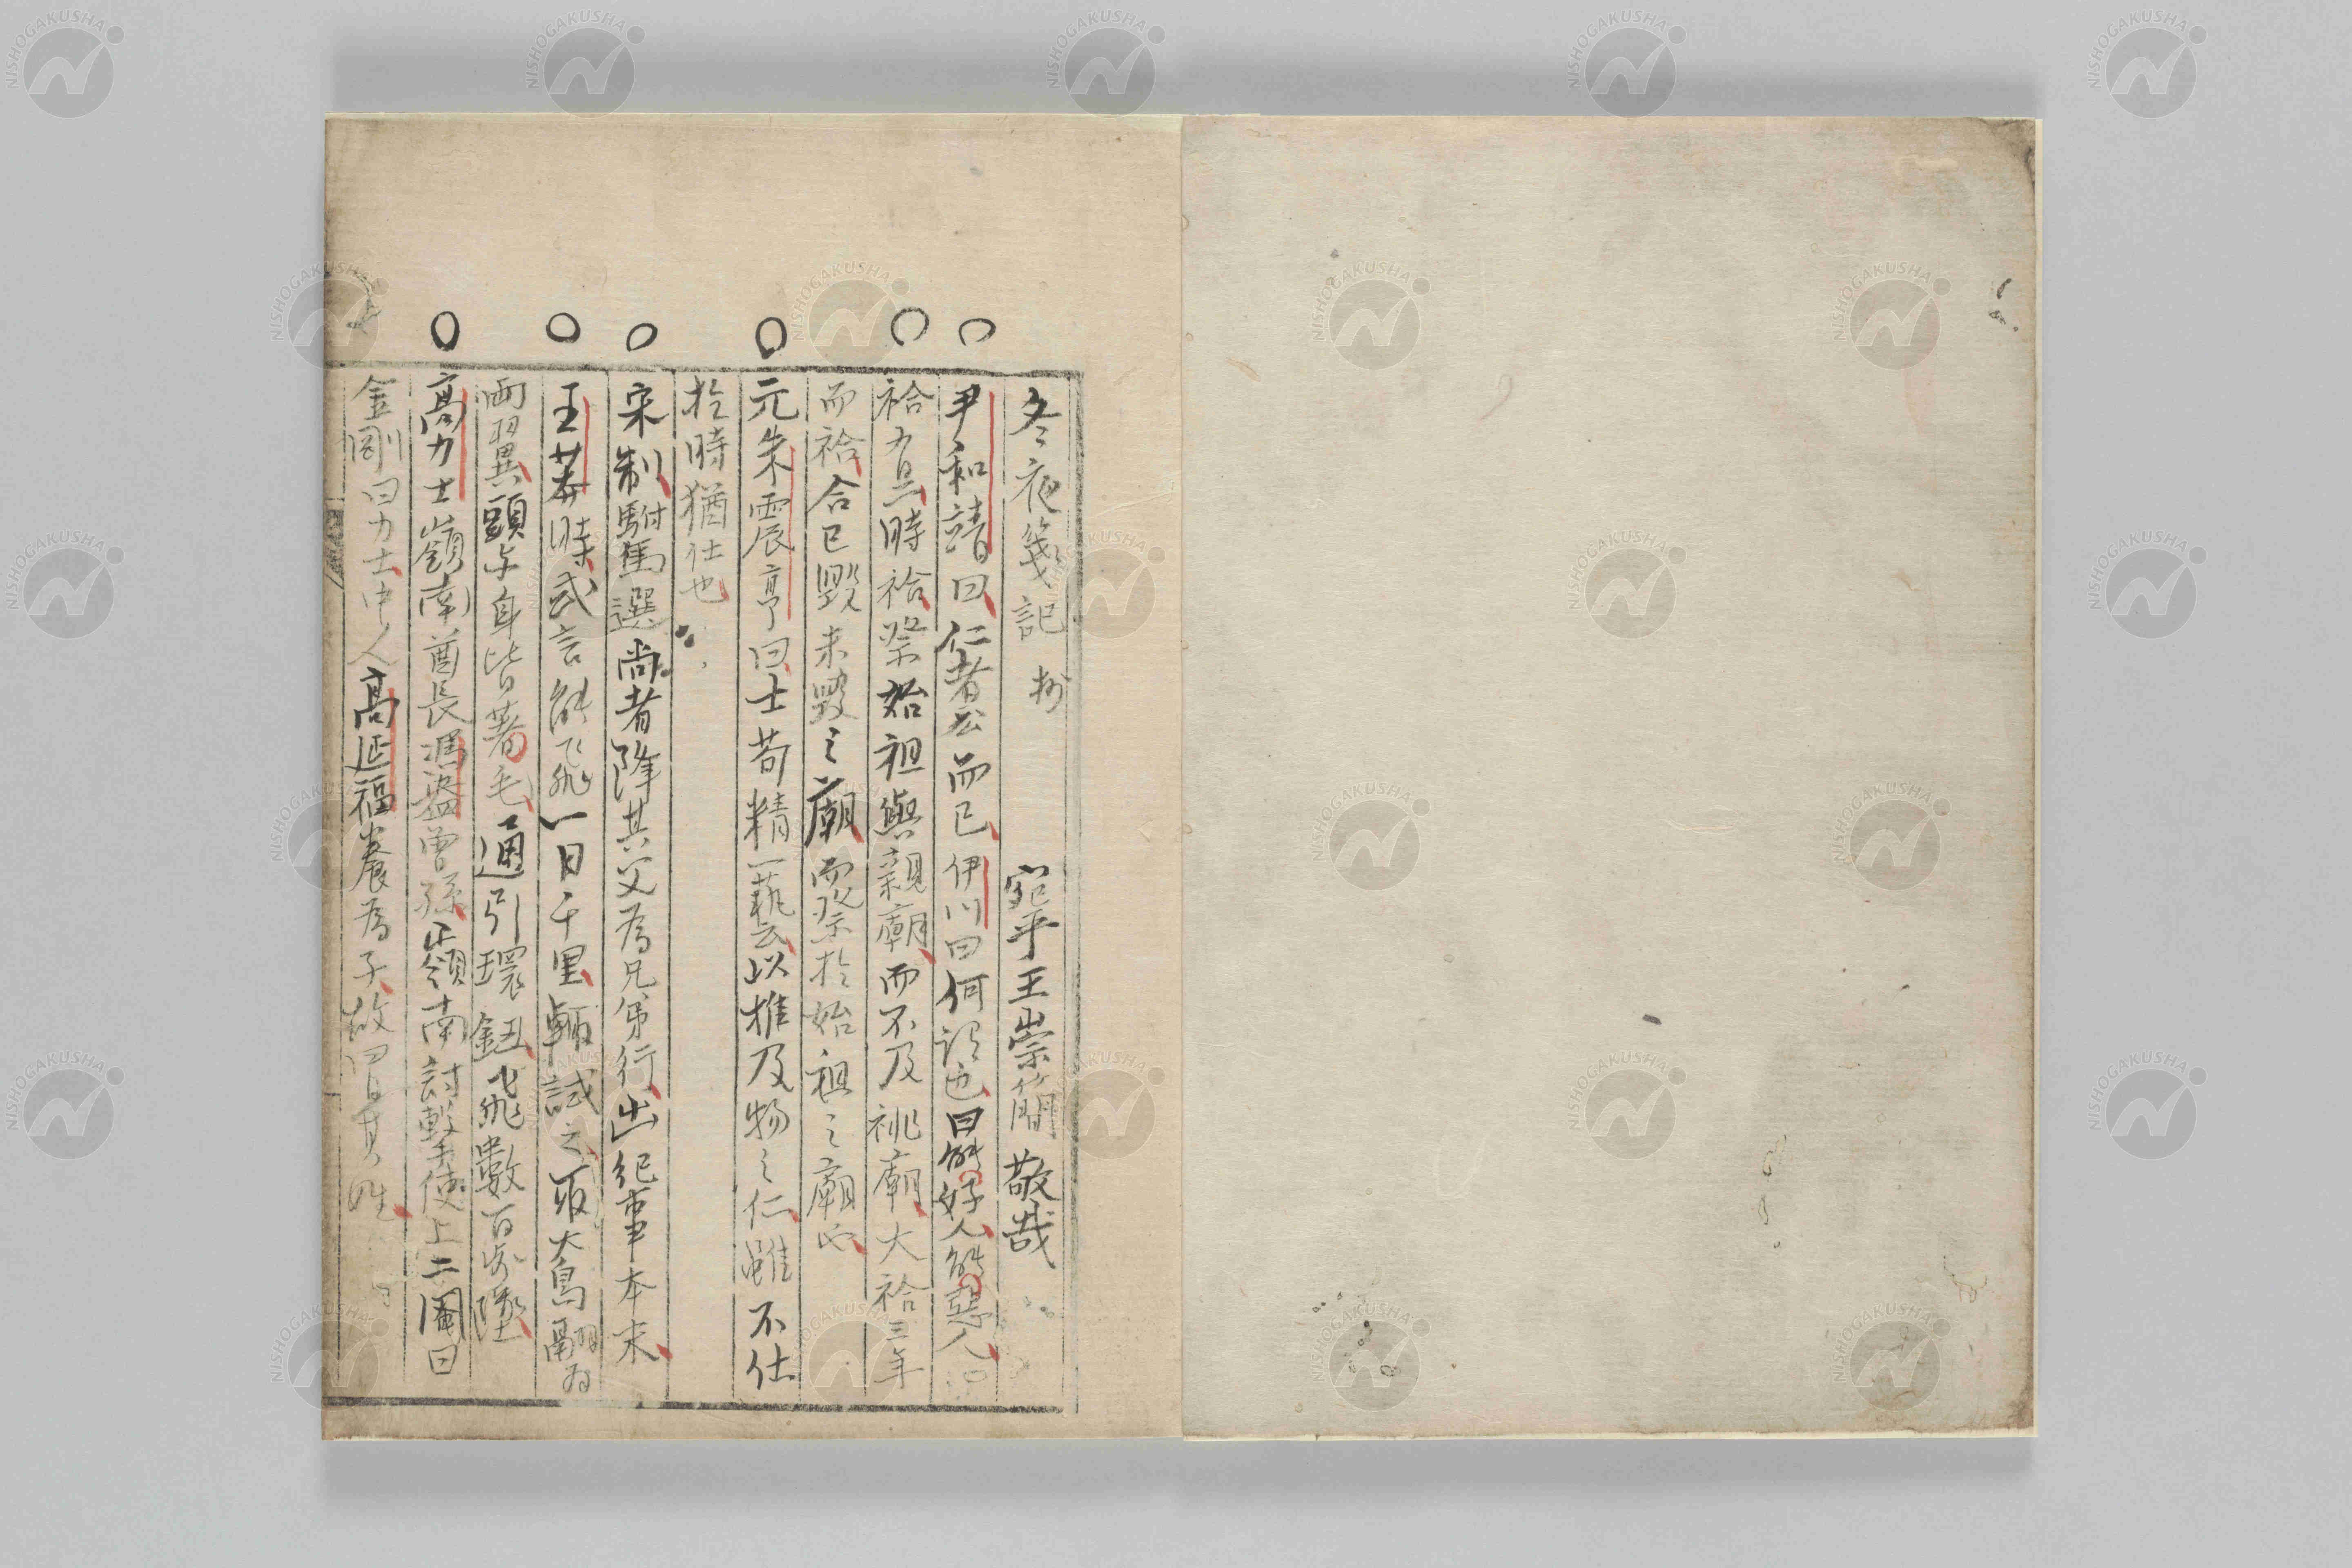 冬夜箋記 抄 宛平王崇簡敬哉
尹和靖曰仁者公而已伊川曰何謂也曰能好人能惡人
祫有二時祫祭始祖與親廟而不及祧廟大祫三年
而祫合已毀未毀之廟而祭於始祖之廟也
元朱震亨曰士苟精一藝以推及物之仁雖不仕
於時猶仕也
宋制駙馬選尚者降其父為兄弟行出紀事本末
王莽時或言能飛一日千里輒試之取大鳥翮為
兩翼頭与身皆著毛通引環鈕飛數百步墜
高力士嶺南酋長馮盎曾孫嶺南討擊使上二閹曰
金剛曰力士中人高延福養為子故冒其姓